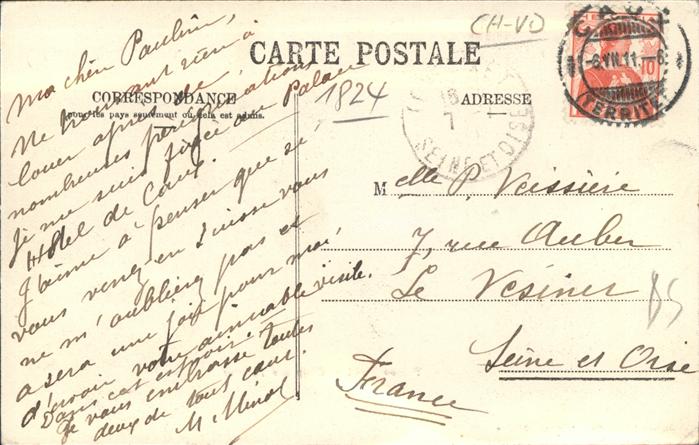 CARTE POSTALE
CORRESPONDANCE
Pour les pays seulement où cela est admis.
ADRESSE
CH-VD
1824
CAUX
-6.VII.11.-6
(TERRITET)
HELVETIA
10
16
7
SEINE-ET-OISE
Ma chère Pauline,
Ne trouvant rien à
louer après de
nombreuses pérégrinations
je me suis fixée au Palace
Hôtel de Caux.
J'aime à penser que si
vous venez en Suisse vous
ne m'oubliez pas et
ce sera une joie pour moi
d'avoir votre aimable visite.
Dans cet espoir
je vous embrasse toutes
deux de tout cœur.
M
Melle P. Veissière
7, rue Auber
Le Vésinet
Seine et Oise
France